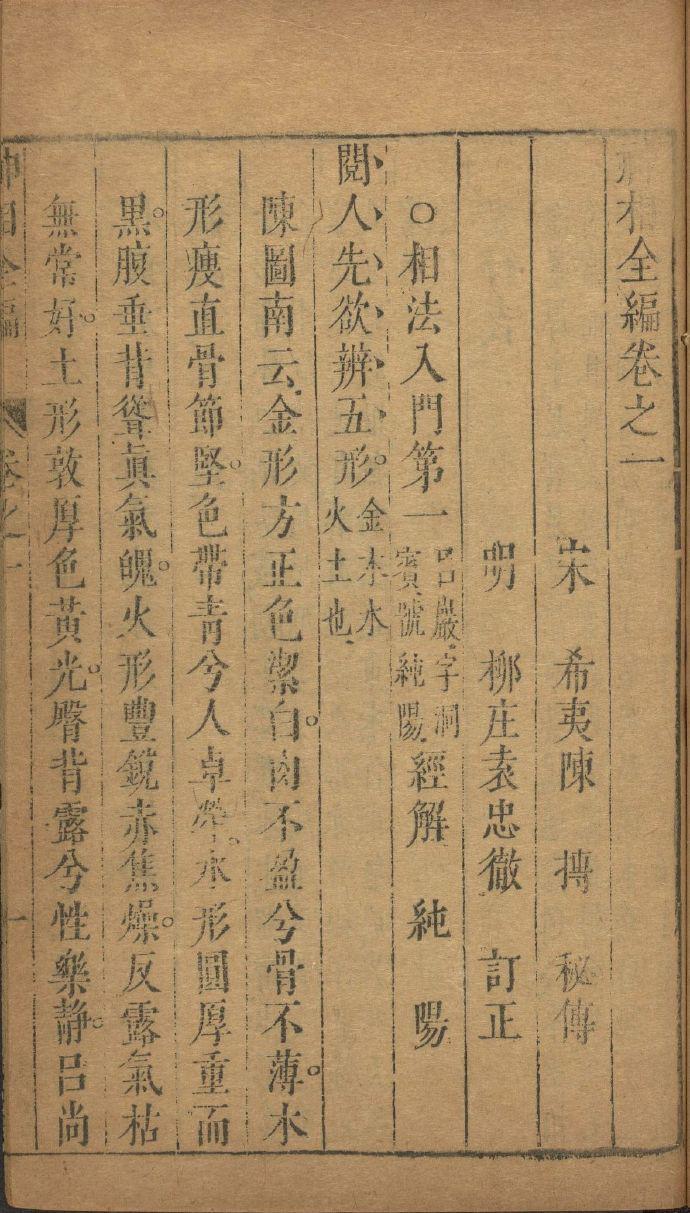 神相全編卷之一
宋 希夷陳 摶 秘傳
明 柳庄袁忠徹 訂正
○相法入門第一 呂巖字洞賓號純陽 經解 純陽
閱人先欲辨五形 金木水火土也
陳圖南云金形方正色潔白肉不盈兮骨不薄木
形瘦直骨節堅色帶青兮人卓犖水形圓厚重而
黑腹垂背聳眞氣魄火形豐銳赤焦燥反露氣枯
無常好土形敦厚色黃光臀背露兮性樂靜呂尚
神相全編 卷之一 一